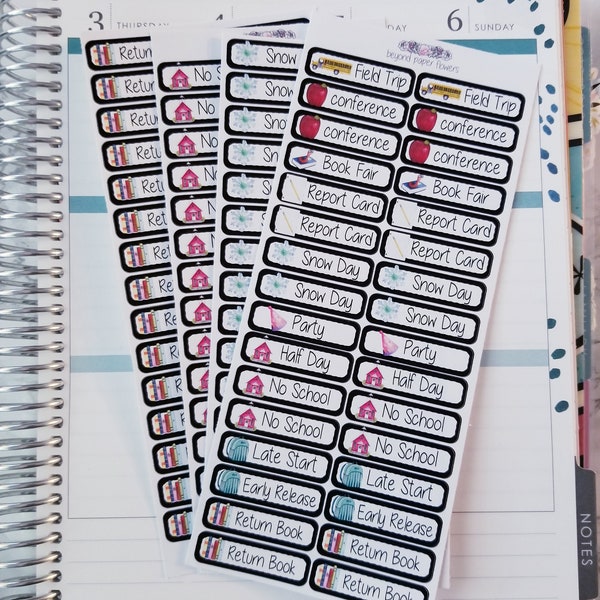 3 THURSDAY
4
5
DAY
6 SUNDAY
beyond paper flowers
Field Trip
Field Trip
conference
conference
conference
conference
Book Fair
Book Fair
Report Card
Report Card
Report Card
Report Card
Snow Day
Snow Day
Snow Day
Snow Day
Party
Party
Half Day
Half Day
No School
No School
No School
No School
Late Start
Late Start
Early Release
Early Release
Return Book
Return Book
Return Book
Return Book
Snow Day
Snow Da
Snow D
Snow
Snow
Snow
Snow
Sno
Sno
No S
No S
No
No
No
No
No
Return
Return
Return
Retu
Retu
Retu
Ret
Ret
Ret
Ret
Re
Re
NOTES